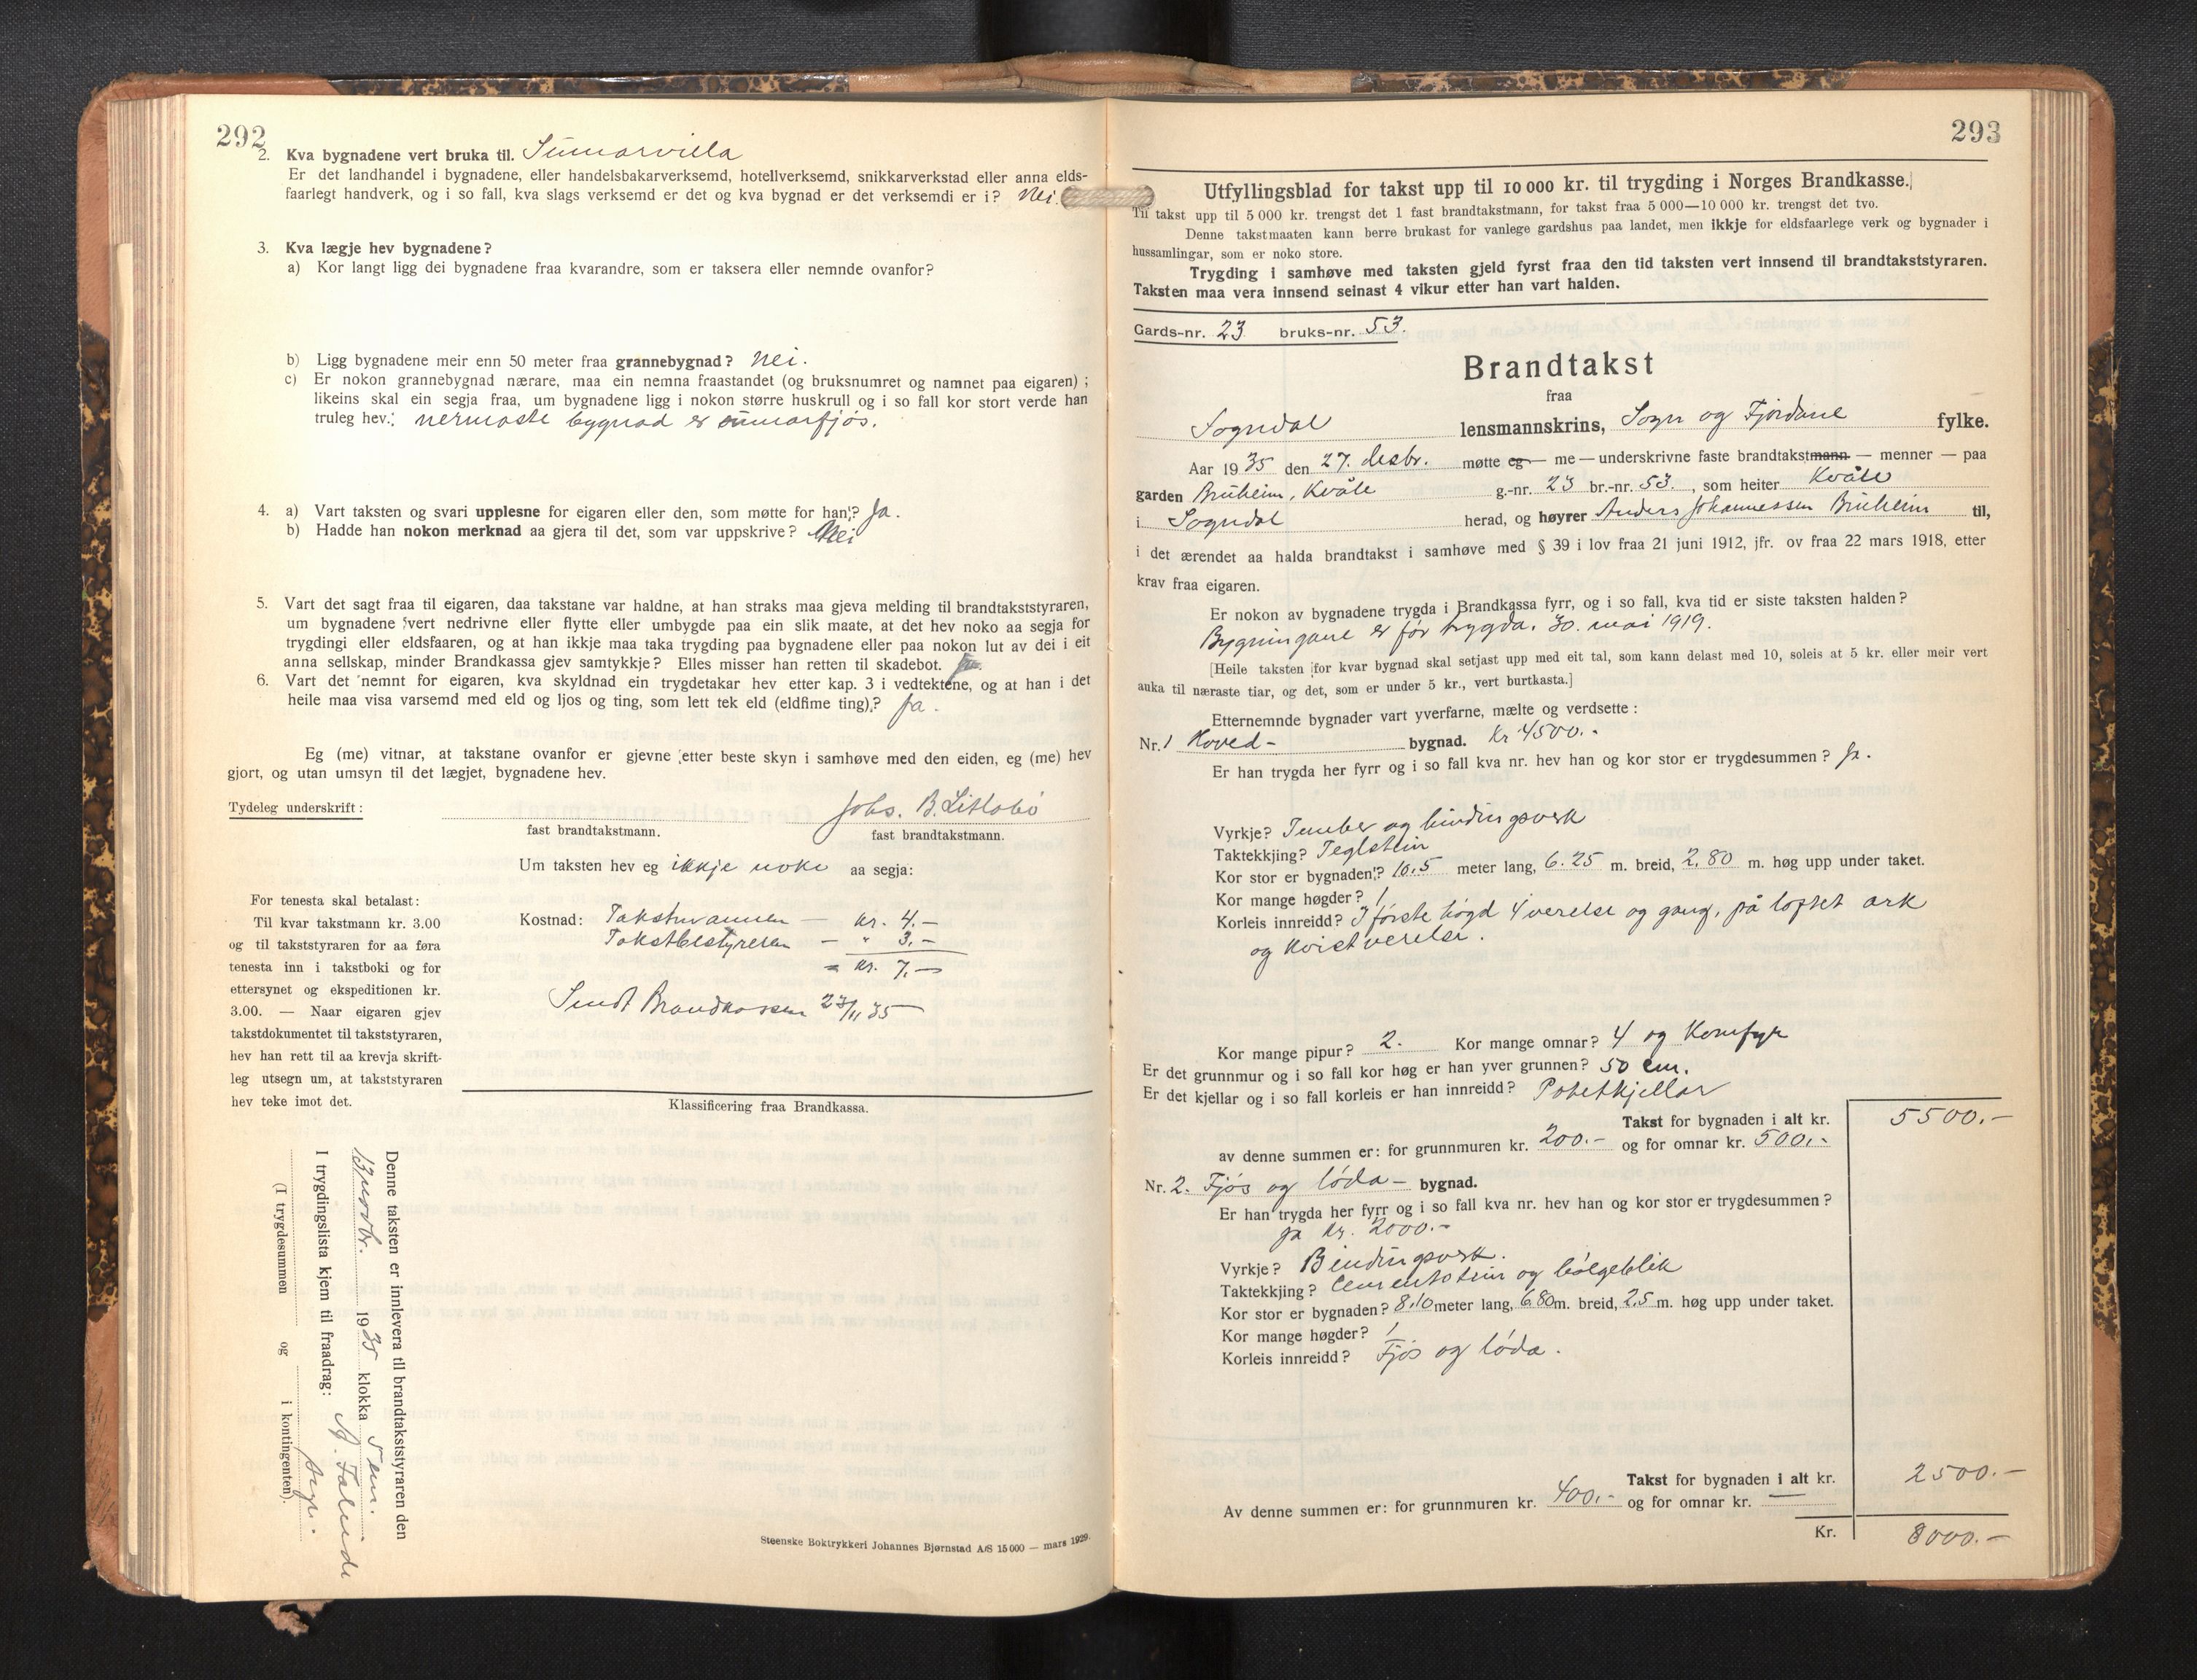 292
2. Kva bygnadene vert bruka til. Sumarvilla
Er det landhandel i bygnadene, eller handelsbakarverksemd, hotellverksemd, snikkarverkstad eller anna elds-
faarlegt handverk, og i so fall, kva slags verksemd er det og kva bygnad er det verksemdi er i? Nei.
3. Kva lægje hev bygnadene?
a) Kor langt ligg dei bygnadene fraa kvarandre, som er taksera eller nemnde ovanfor?
b) Ligg bygnadene meir enn 50 meter fraa grannebygnad? Nei.
c) Er nokon grannebygnad nærare, maa ein nemna fraastandet (og bruksnumret og namnet paa eigaren) ;
likeins skal ein segja fraa, um bygnadene ligg i nokon større huskrull og i so fall kor stort verde han
truleg hev.: nermaste bygnad er sumarfjøs.
4. a) Vart taksten og svari upplesne for eigaren eller den, som møtte for han? Ja.
b) Hadde han nokon merknad aa gjera til det, som var uppskrive? Nei
5. Vart det sagt fraa til eigaren, daa takstane var haldne, at han straks maa gjeva melding til brandtakststyraren,
um bygnadene vert nedrivne eller flytte eller umbygde paa ein slik maate, at det hev noko aa segja for
trygdingi eller eldsfaaren, og at han ikkje maa taka trygding paa bygnadene eller paa nokon lut av dei i eit
anna sellskap, minder Brandkassa gjev samtykkje? Elles misser han retten til skadebot. Ja.
6. Vart det nemnt for eigaren, kva skyldnad ein trygdetakar hev etter kap. 3 i vedtektene, og at han i det
heile maa visa varsemd med eld og ljos og ting, som lett tek eld (eldfime ting)? Ja.
Eg (me) vitnar, at takstane ovanfor er gjevne etter beste skyn i samhøve med den eiden, eg (me) hev
gjort, og utan umsyn til det lægjet, bygnadene hev.
Tydeleg underskrift: Johs. B. Litlabø
fast brandtakstmann. fast brandtakstmann.
Um taksten hev eg ikkje noko aa segja:
For tenesta skal betalast:
Til kvar takstmann kr. 3.00
og til takststyraren for aa føra
tenesta inn i takstboki og for
ettersynet og ekspeditionen kr.
3.00. — Naar eigaren gjev
takstdokumentet til takststyraren,
hev han rett til aa krevja skrift-
leg utsegn um, at takststyraren
hev teke imot det.
Kostnad: Takstmannen — kr. 4.—
Takstbestyreren — " 3.—
= kr. 7.—
Sendt Brandkassen 23/11 35
Klassificering fraa Brandkassa.
Denne taksten er innlevera til brandtakststyraren den
13 novbr. 1935 klokka 5 em.
I trygdingslista kjem til fraadrag:
(I trygdesummen og i kontingenten).
Steenske Boktrykkeri Johannes Bjørnstad A/S 15 000 — mars 1929.
293
Utfyllingsblad for takst upp til 10 000 kr. til trygding i Norges Brandkasse.
Til takst upp til 5 000 kr. trengst det 1 fast brandtakstmann, for takst fraa 5 000—10 000 kr. trengst det tvo.
Denne takstmaaten kann berre brukast for vanlege gardshus paa landet, men ikkje for eldsfaarlege verk og bygnader i
hussamlingar, som er noko store.
Trygding i samhøve med taksten gjeld fyrst fraa den tid taksten vert innsend til brandtakststyraren.
Taksten maa vera innsend seinast 4 vikur etter han vart halden.
Gards-nr. 23 bruks-nr. 53.
Brandtakst
fraa
Sogndal lensmannskrins, Sogn og Fjordane fylke.
Aar 1935 den 27. desbr. møtte eg — me — underskrivne faste brandtakstmann — menner — paa
garden Bruheim, Kvåle g.-nr. 23 br.-nr. 53. , som heiter Kvåle
i Sogndal herad, og høyrer Anders Johannessen Bruheim til,
i det ærendet aa halda brandtakst i samhøve med § 39 i lov fraa 21 juni 1912, jfr. ov fraa 22 mars 1918, etter
krav fraa eigaren.
Er nokon av bygnadene trygda i Brandkassa fyrr, og i so fall, kva tid er siste taksten halden?
Bygningane er før trygda. 30. mai 1919.
[Heile taksten for kvar bygnad skal setjast upp med eit tal, som kann delast med 10, soleis at 5 kr. eller meir vert
auka til næraste tiar, og det, som er under 5 kr., vert burtkasta.]
Etternemnde bygnader vart yverfarne, mælte og verdsette :
Nr. 1 Hoved- bygnad. Kr 4500.-
Er han trygda her fyrr og i so fall kva nr. hev han og kor stor er trygdesummen? Ja.
Vyrkje? Tember og bindingsverk
Taktekkjing? Teglstein
Kor stor er bygnaden? 10.5 meter lang, 6.25 m. breid, 2.80 m. høg upp under taket.
Kor mange høgder? 1
Korleis innreidd? I første høgd 4 verelse og gang, på loftet ark
og kvistverelse.
Kor mange pipur? 2. Kor mange omnar? 4 og Komfyr
Er det grunnmur og i so fall kor høg er han yver grunnen? 50 cm.
Er det kjellar og i so fall korleis er han innreidd? Potetkjellar
Takst for bygnaden i alt kr. 5500.—
av denne summen er: for grunnmuren kr. 200.- og for omnar kr. 500.-
Nr. 2. Fjøs og løda- bygnad.
Er han trygda her fyrr og i so fall kva nr. hev han og kor stor er trygdesummen?
ja kr. 2000.-
Vyrkje? Bindingsverk.
Taktekkjing? Cementstein og bølgeblik
Kor stor er bygnaden? 8.10 meter lang, 6.80 m. breid, 2.5 m. høg upp under taket.
Kor mange høgder? 1
Korleis innreidd? Fjøs og løda.
Takst for bygnaden i alt kr. 2500.—
Av denne summen er: for grunnmuren kr. 400.- og for omnar kr. —
Kr. 8000.—